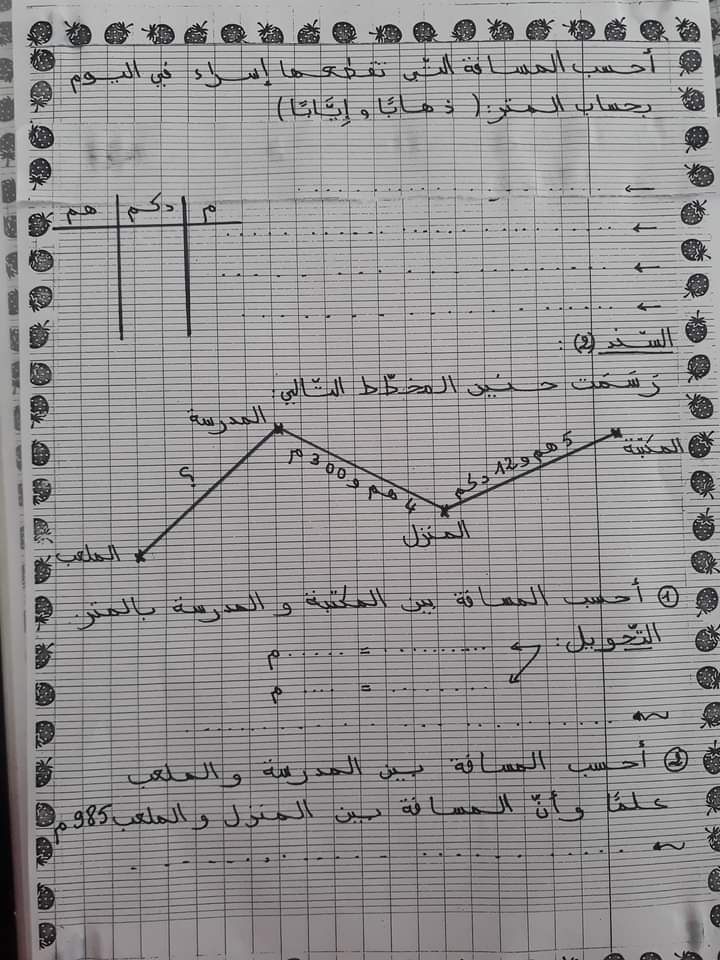 أحسب المسافة التّي تقطعها إسراء في اليوم
بحساب المتر: ( ذهابًا و إيّابًا )
م | دكم | هم
السّند (2):
رَسَمَت حنين المخطّط التّالي:
المدرسة
المكتبة
؟
4 هم و 300 م
5 هم و 12 دكم
المنزل
الملعب
① أحسب المسافة بين المكتبة و المدرسة بالمتر.
التّحويل: .......... = ...... م
......... = .... م
② أحسب المسافة بين المدرسة و الملعب
علمًا و أنّ المسافة بين المنزل و الملعب 985 م